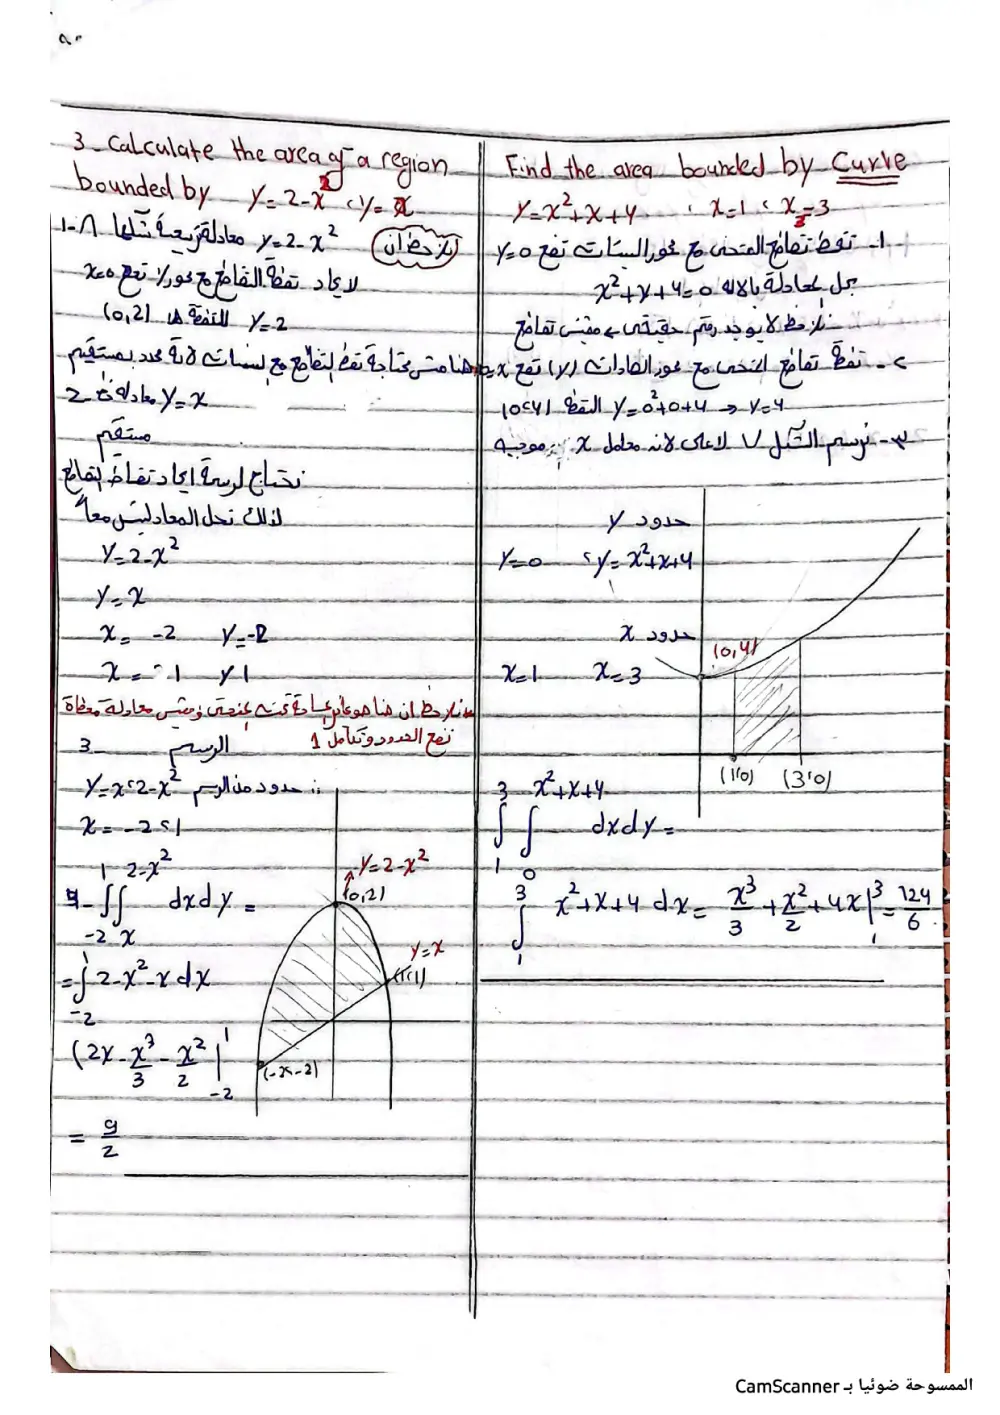 3- Calculate the area of a region
bounded by y=2-x² ، y=x
1- y=2-x² معادلة تربيعية شكلها ∩
نلاحظ ان
لايجاد نقطة التقاطع مع محور y نضع x=0
y=2 النقطة (0,2)
هنا مش محتاجة نقط التقاطع مع السينات لانة محدد بمستقيم
2- y=x معادلة خط
مستقيم
نحتاج لرسمة ايجاد نقاط التقاطع
لذلك نحل المعادلتين معاً
y=2-x²
y=x
x= -2 y=-2
x= 1 y 1
نلاحظ ان هنا هو عايز مساحة تحت المنحنى ومش معادلة معطاة
نضع الحدود ونكامل 1
3- الرسم
∴ حدود من الرسم y=x ، 2-x²
x= -2 ، 1
1 2-x²
4- ∫∫ dxdy =
-2 x
1
=∫ 2-x²-x dx
-2
(2x - x³/3 - x²/2 |¹₋₂
= 9/2
y=2-x²
(0,2)
y=x
(1,1)
(-2,-2)
Find the area bounded by Curve
y=x²+x+4 ، x=1 ، x=3
1- نقط تقاطع المنحنى مع محور السينات نضع y=0
بحل المعادلة بالالة x²+x+4=0
نلاحظ لا يوجد رقم حقيقى ← مفيش تقاطع
2- نقطة تقاطع المنحنى مع محور الصادات (y) نضع x=0
y=0²+0+4 → y=4 النقطة (0,4)
3- نرسم الشكل ∪ لاعلى لانه معامل x² موجبه
حدود y
y=0 ، y=x²+x+4
حدود x
x=1 x=3
(0,4)
(1,0) (3,0)
3 x²+x+4
∫ ∫ dxdy =
1 0
3
∫ x²+x+4 dx = x³/3 + x²/2 + 4x |³₁ = 124/6
1
الممسوحة ضوئيا بـ CamScanner